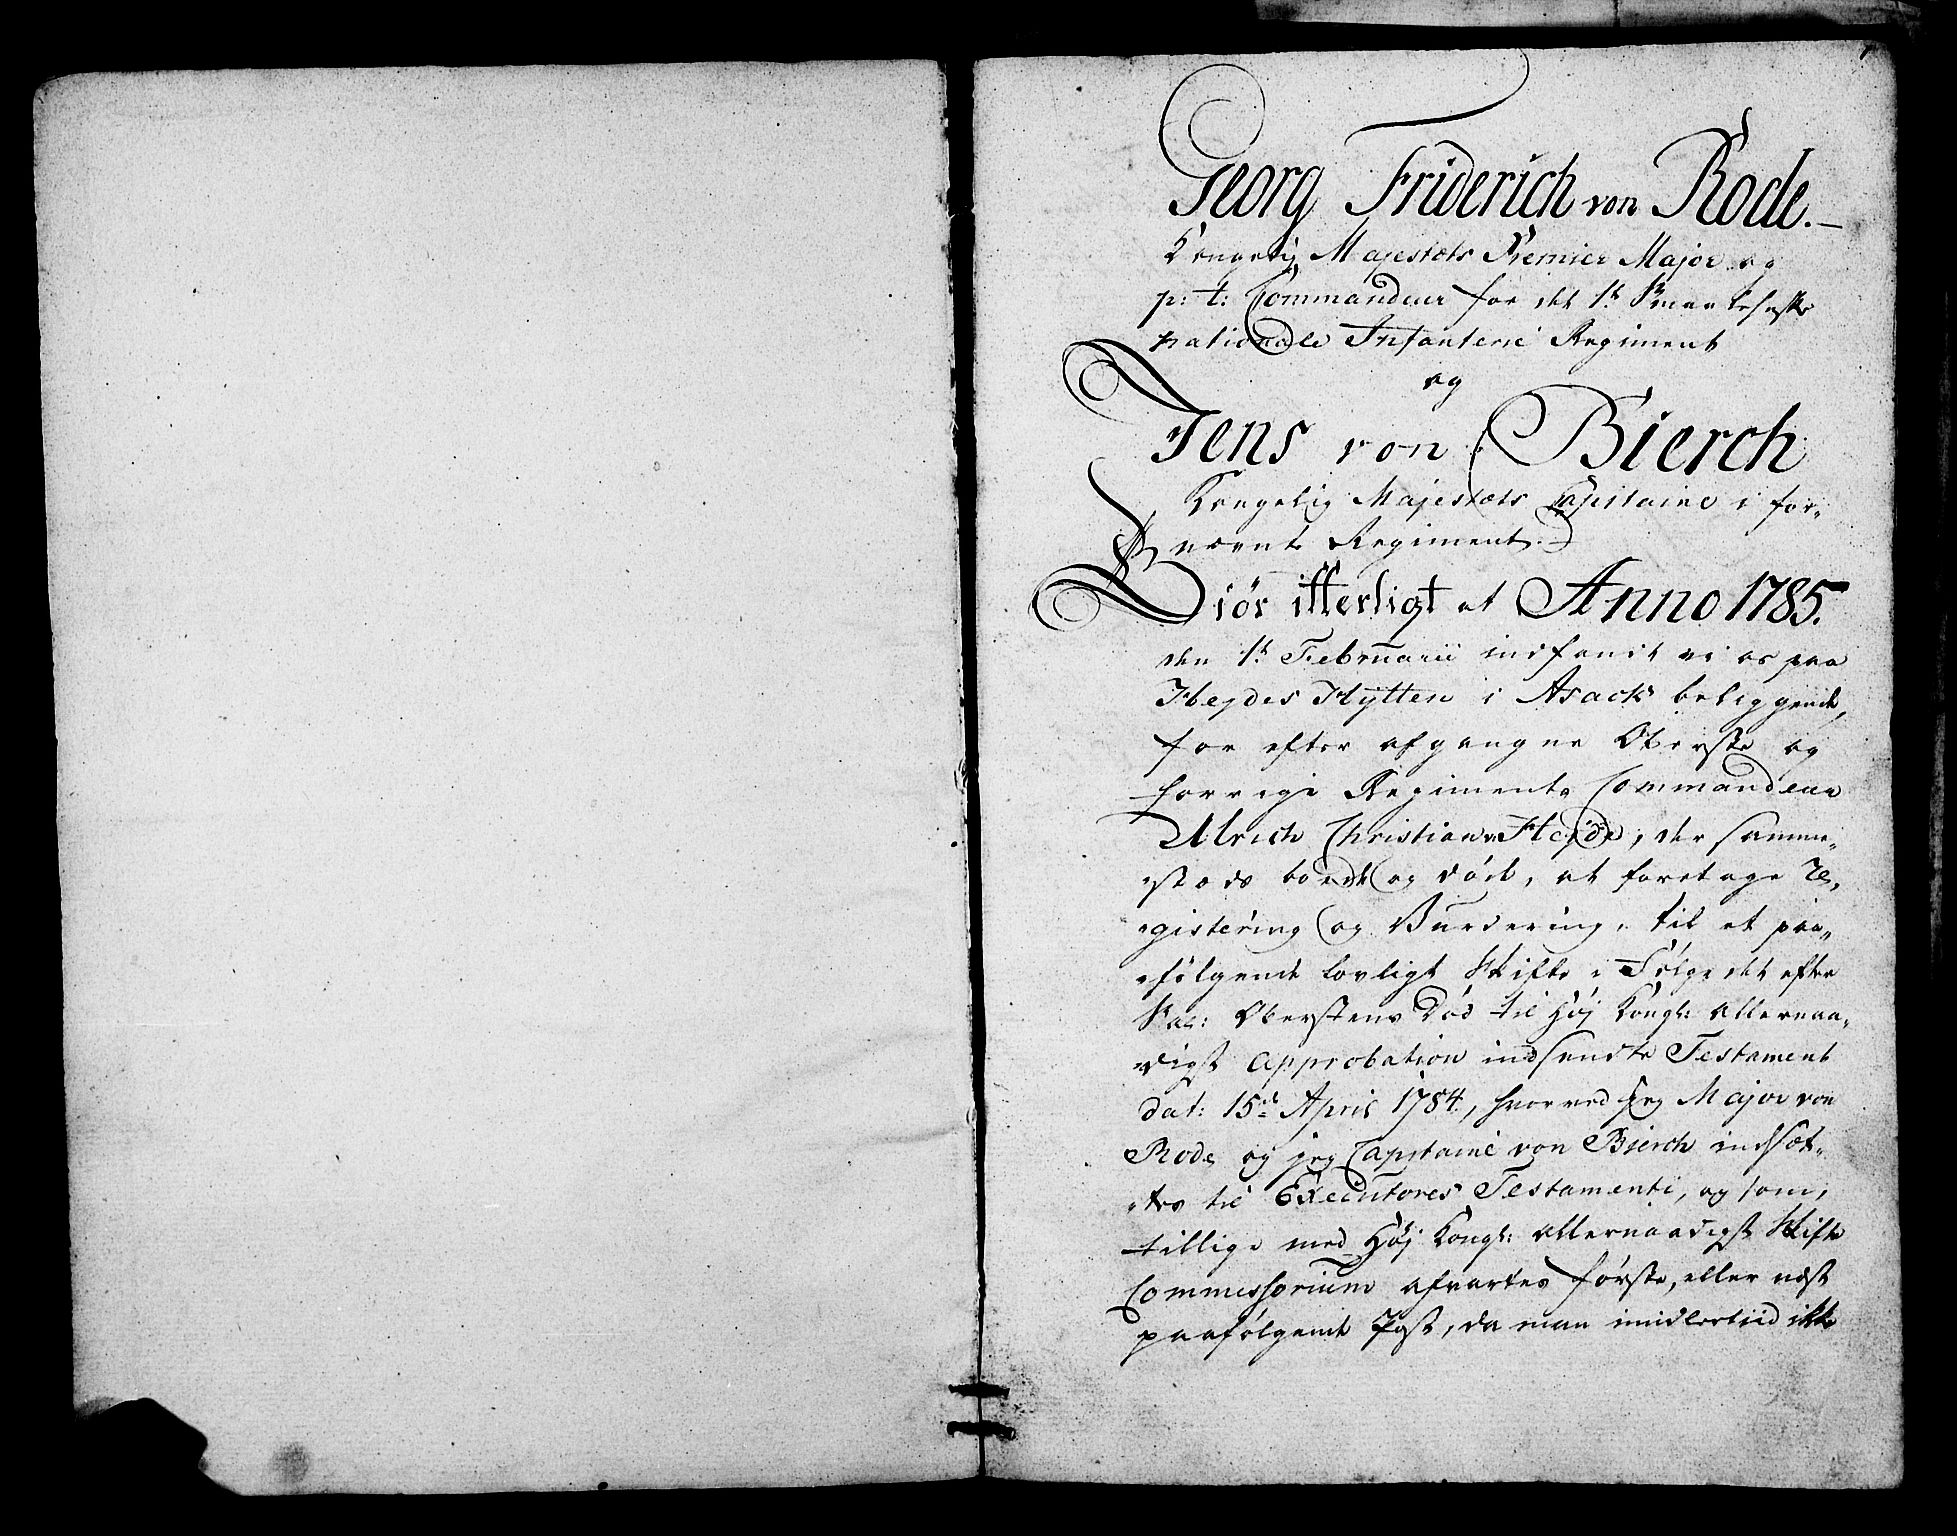 Georg Friderich von Rode.
Kongelig Majestæts Premier Major og
p: t: Commandeur for det 1te Smaalehnske
nationale Infanterie Regiment
og
Jens von Bierch
Kongelig Majestæts Capitaine i for„
nævnte Regiment.
Giør itterligt at Anno 1785.
den 1te Februarii indfandt vi os paa
Heydes Hytten i Asack beliggende,
for efter afgangne Oberste og
forrige Regiments Commandeur
Ulrich Christian v. Heyde, der samme„
„stæds boede og døde, at foretage Re„
„gistering og Vurdering, til et paa„
„følgende lovligt Skifte i Følge det efter
Sal: Oberstens Død til Høj Kongl: allernaa„
„digst approbation indsendte Testament
dat: 15de April 1784, hvorved jeg Major von
Rode og jeg Capitaine von Bierch indsæt„
„tes til Executores Testamenti, og som,
tillige med Høj Kongl: allernaadigst Skifte
Commissorium afvartes første, eller næst
paafølgende Post, da man imidlertiid ikke